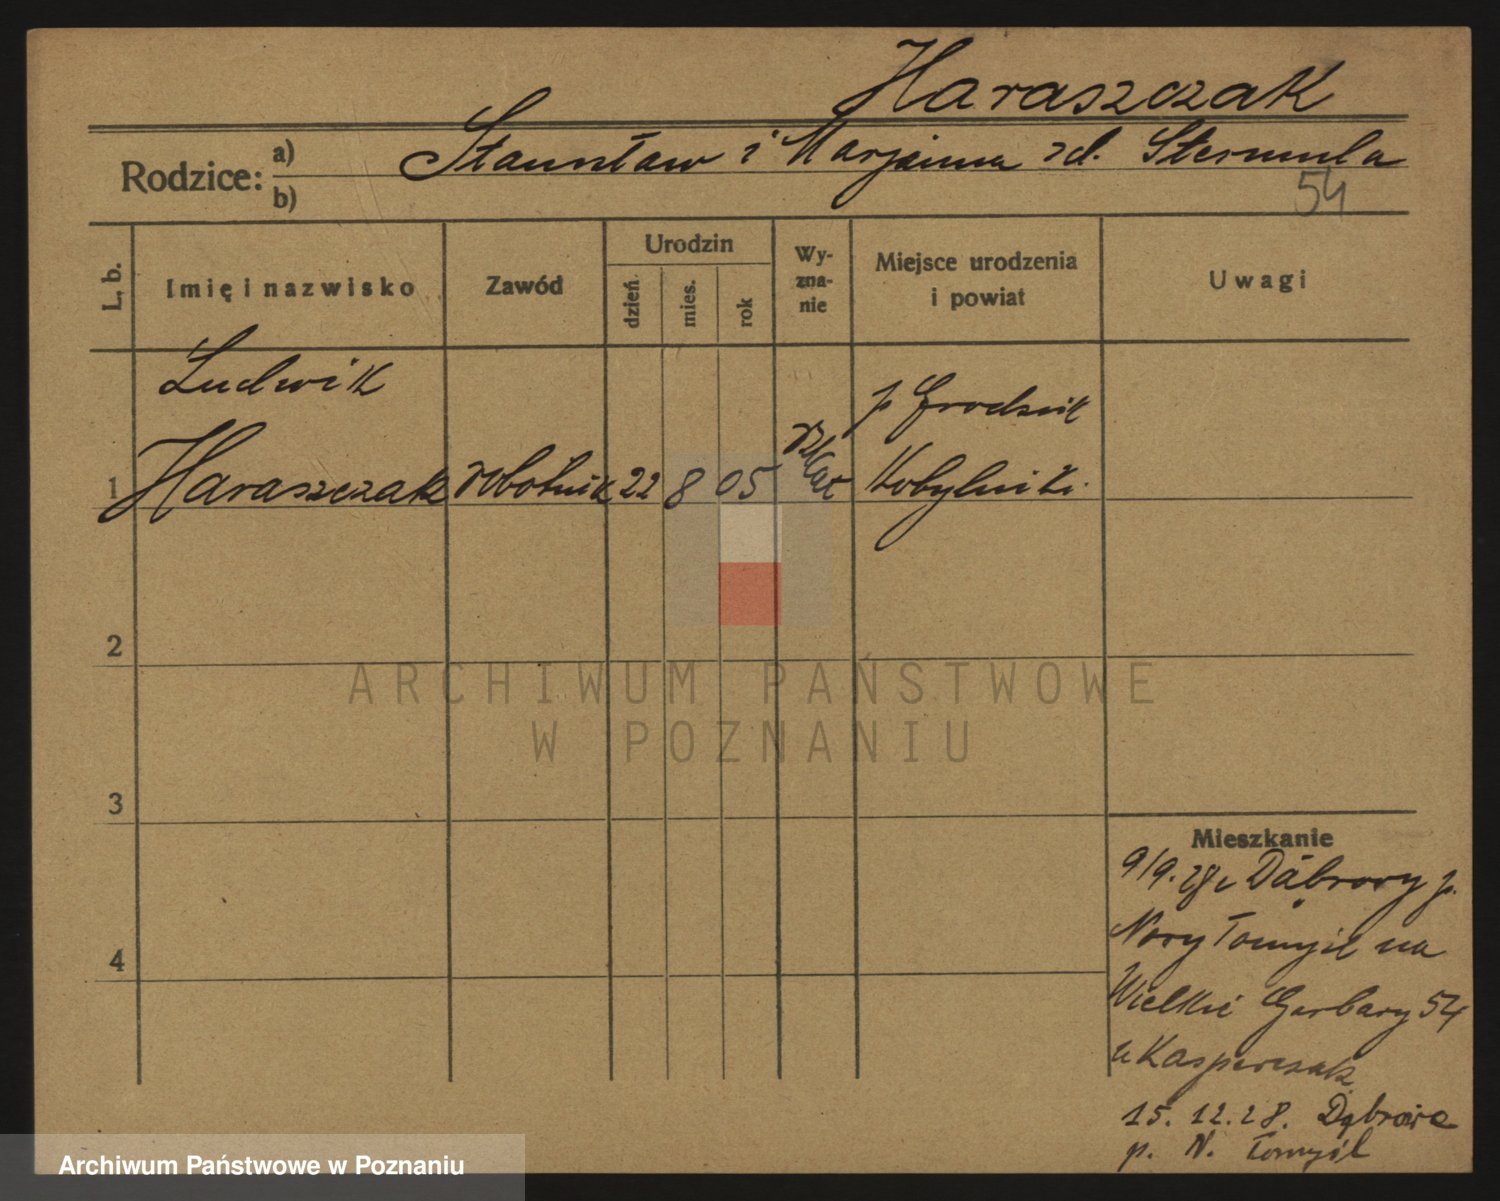 Haraszczak
Rodzice: a) Stanisław i Marjanna zd. Stermula
b)
54
L. b.
Imię i nazwisko
Zawód
Urodzin
dzień
mies.
rok
Wy-
zna-
nie
Miejsce urodzenia
i powiat
Uwagi
Ludwik
p Grodzisk
1 Haraszczak robotnik 22 8 05 rz kat Kobylniki
2
ARCHIWUM PAŃSTWOWE
W POZNANIU
3
4
Mieszkanie
9/9. 28 z Dąbrowy p.
Nowy Tomyśl na
Wielkie Garbary 54
u Kasperczak
15. 12. 28. Dąbrowa
p. N. Tomyśl
Archiwum Państwowe w Poznaniu